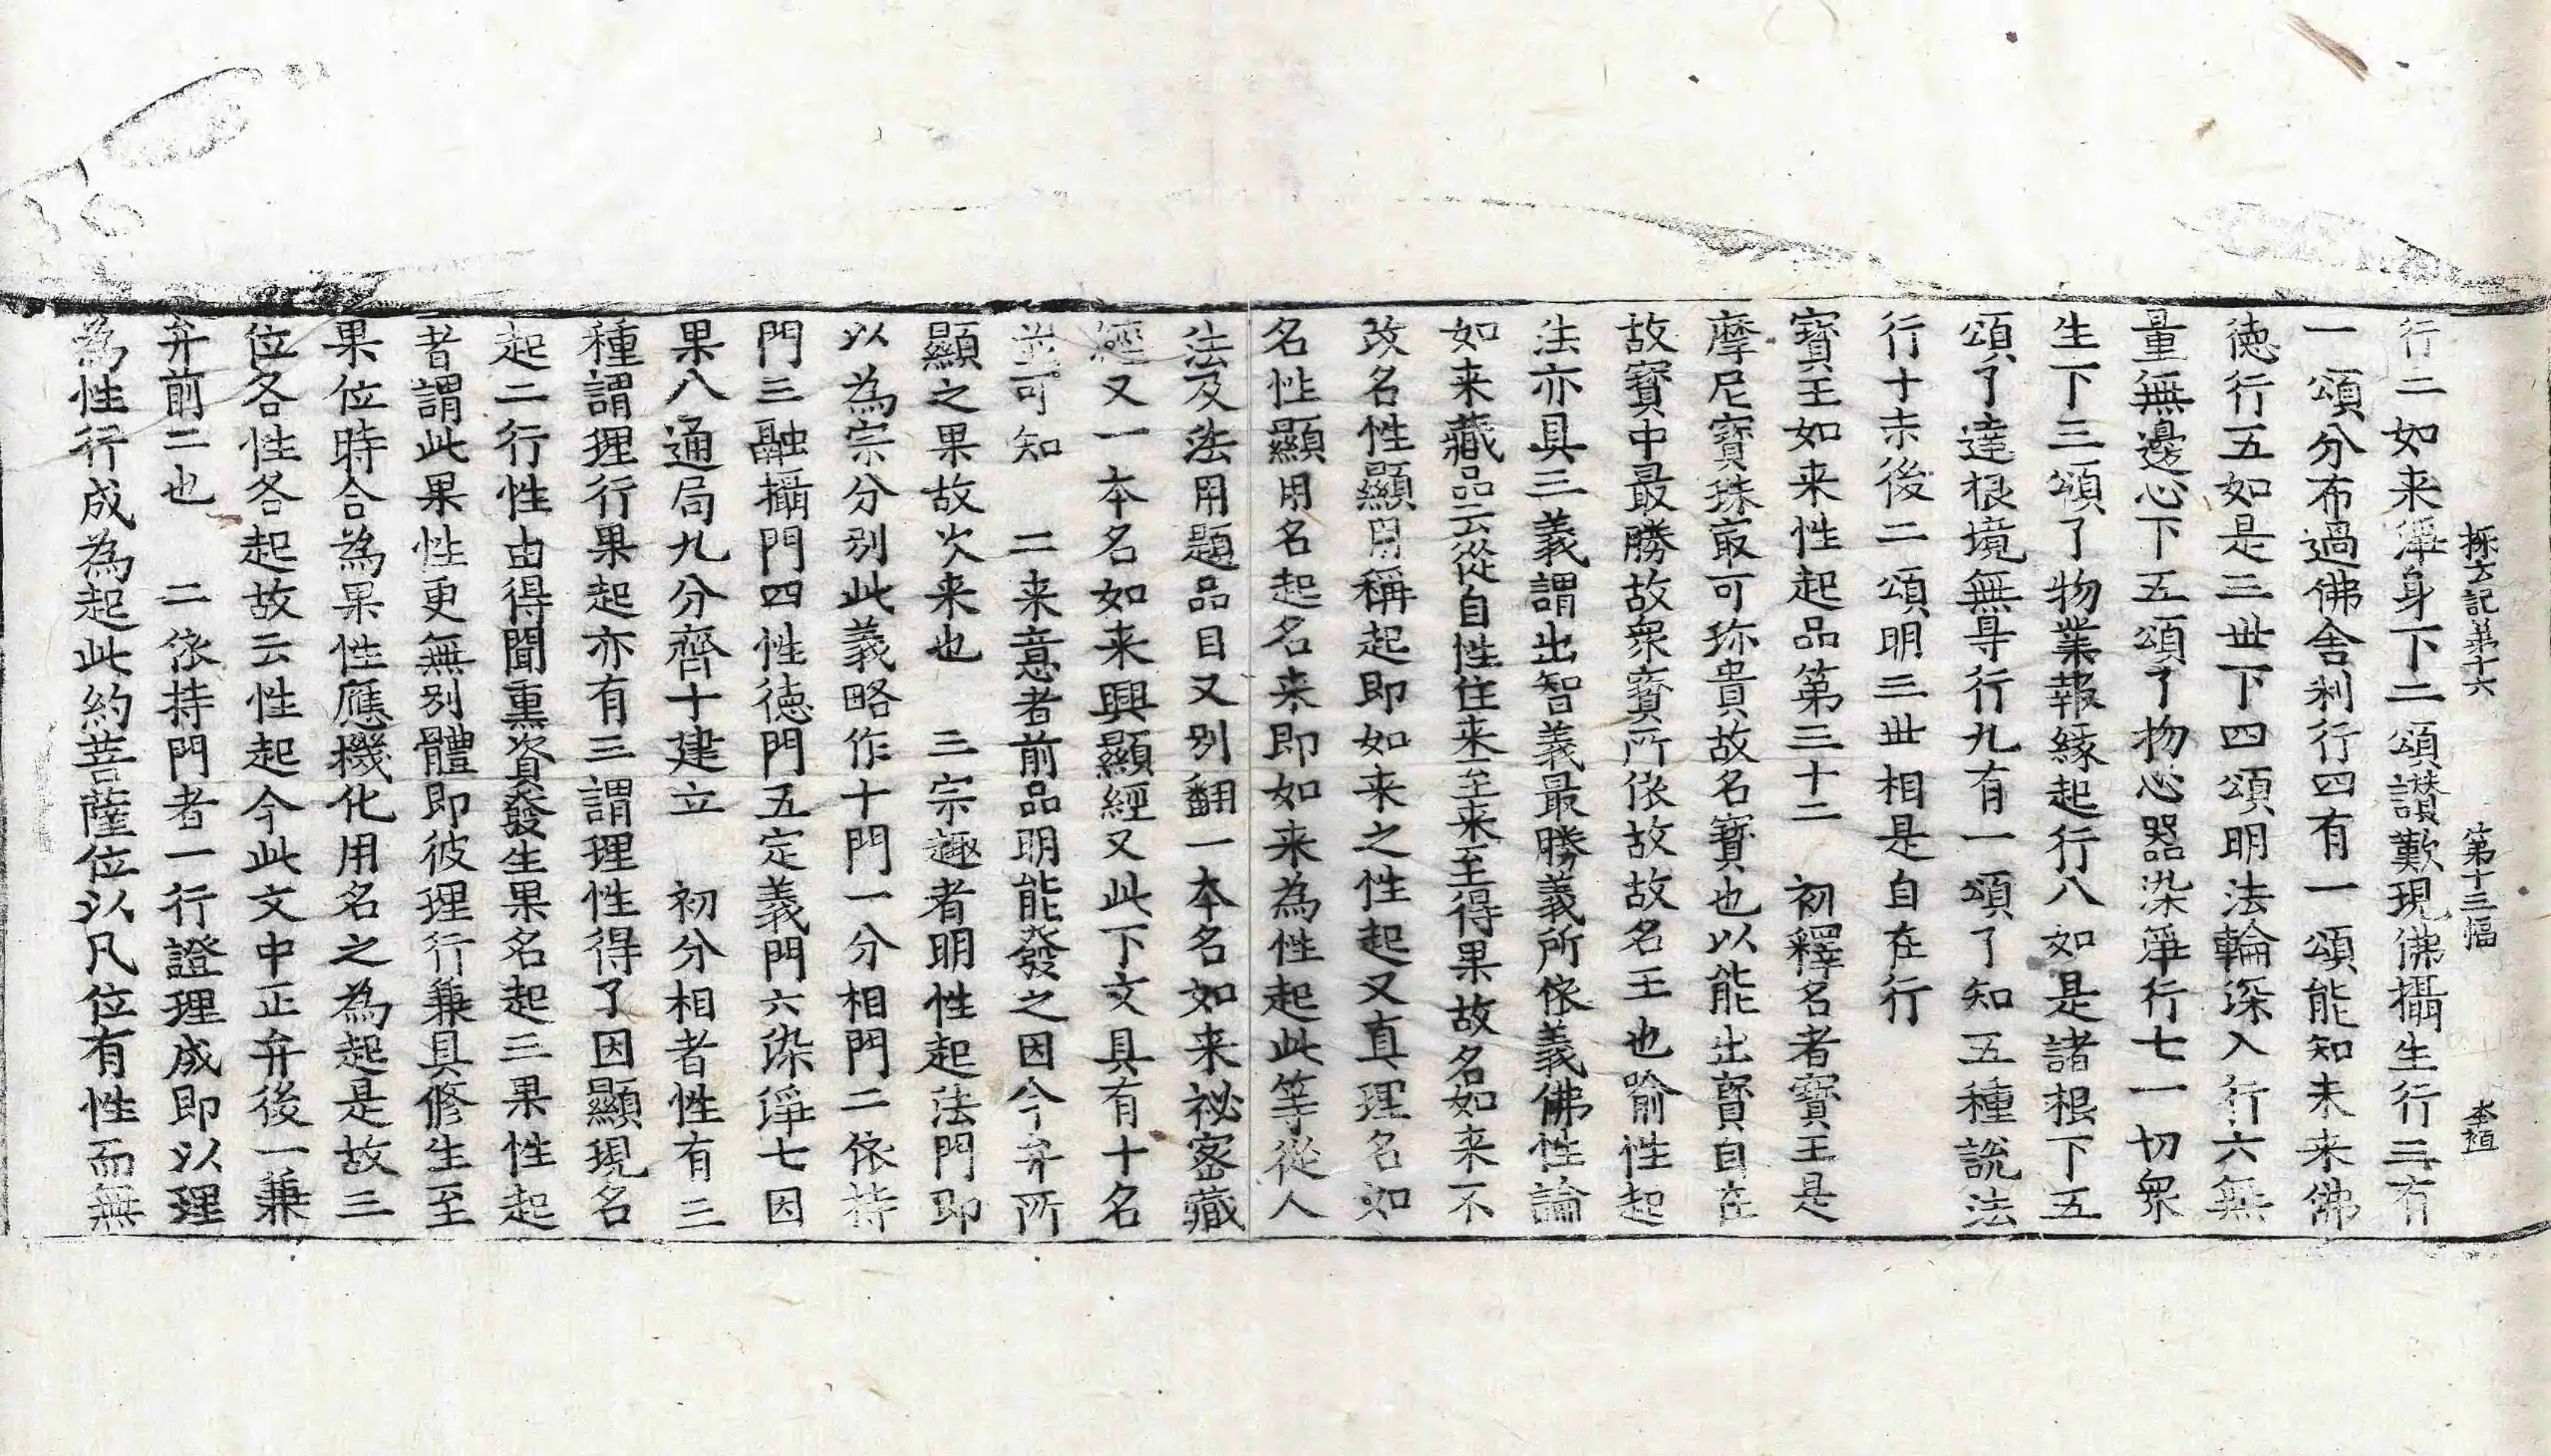 探玄記第十六 第十三幅 李植
行二如来淨身下二頌讃歎現佛攝生行三有
一頌分布過佛舍利行四有一頌能知未来佛
徳行五如是三世下四頌明法輪深入行六無
量無邊心下五頌了物心器染淨行七一切衆
生下三頌了物業報緣起行八如是諸根下五
頌了達根境無㝵行九有一頌了知五種說法
行十末後二頌明三世相是自在行
寳王如来性起品第三十二 初釋名者寳王是
摩尼寳珠㝡可珎貴故名寳也以能出寳自在
故寳中最勝故衆寳所依故故名王也喻性起
法亦具三義謂出智義最勝義所依義佛性論
如来藏品云從自性住来至来至得果故名如来不
改名性顯用稱起即如来之性起又真理名如
名性顯用名起名来即如来為性起此等從人
法及法用題品目又別翻一本名如来祕密藏
經又一本名如来興顯經又此下文具有十名
並可知 二来意者前品明能發之因今弁所
顯之果故次来也 三宗趣者明性起法門即
以為宗分別此義略作十門一分相門二依持
門三融攝門四性徳門五定義門六染淨七因
果八通局九分齊十建立 初分相者性有三
種謂理行果起亦有三謂理性得了因顯現名
起二行性由得聞熏資發生果名起三果性起
者謂此果性更無別體即彼理行兼具修生至
果位時合為果性應機化用名之為起是故三
位各性各起故云性起今此文中正弁後一兼
弁前二也 二依持門者一行證理成即以理
為性行成為起此約菩薩位以凡位有性而無